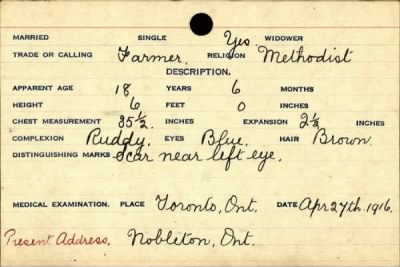 MARRIED SINGLE Yes. WIDOWER
TRADE OR CALLING Farmer. RELIGION Methodist
DESCRIPTION.
APPARENT AGE 18 YEARS 6 MONTHS
HEIGHT 6 FEET 0 INCHES
CHEST MEASUREMENT 35½ INCHES EXPANSION 2½ INCHES
COMPLEXION Ruddy. EYES Blue. HAIR Brown.
DISTINGUISHING MARKS Scar near left eye.
MEDICAL EXAMINATION. PLACE Toronto, Ont. DATE Apr 27th 1916.
Present Address. Nobleton, Ont.